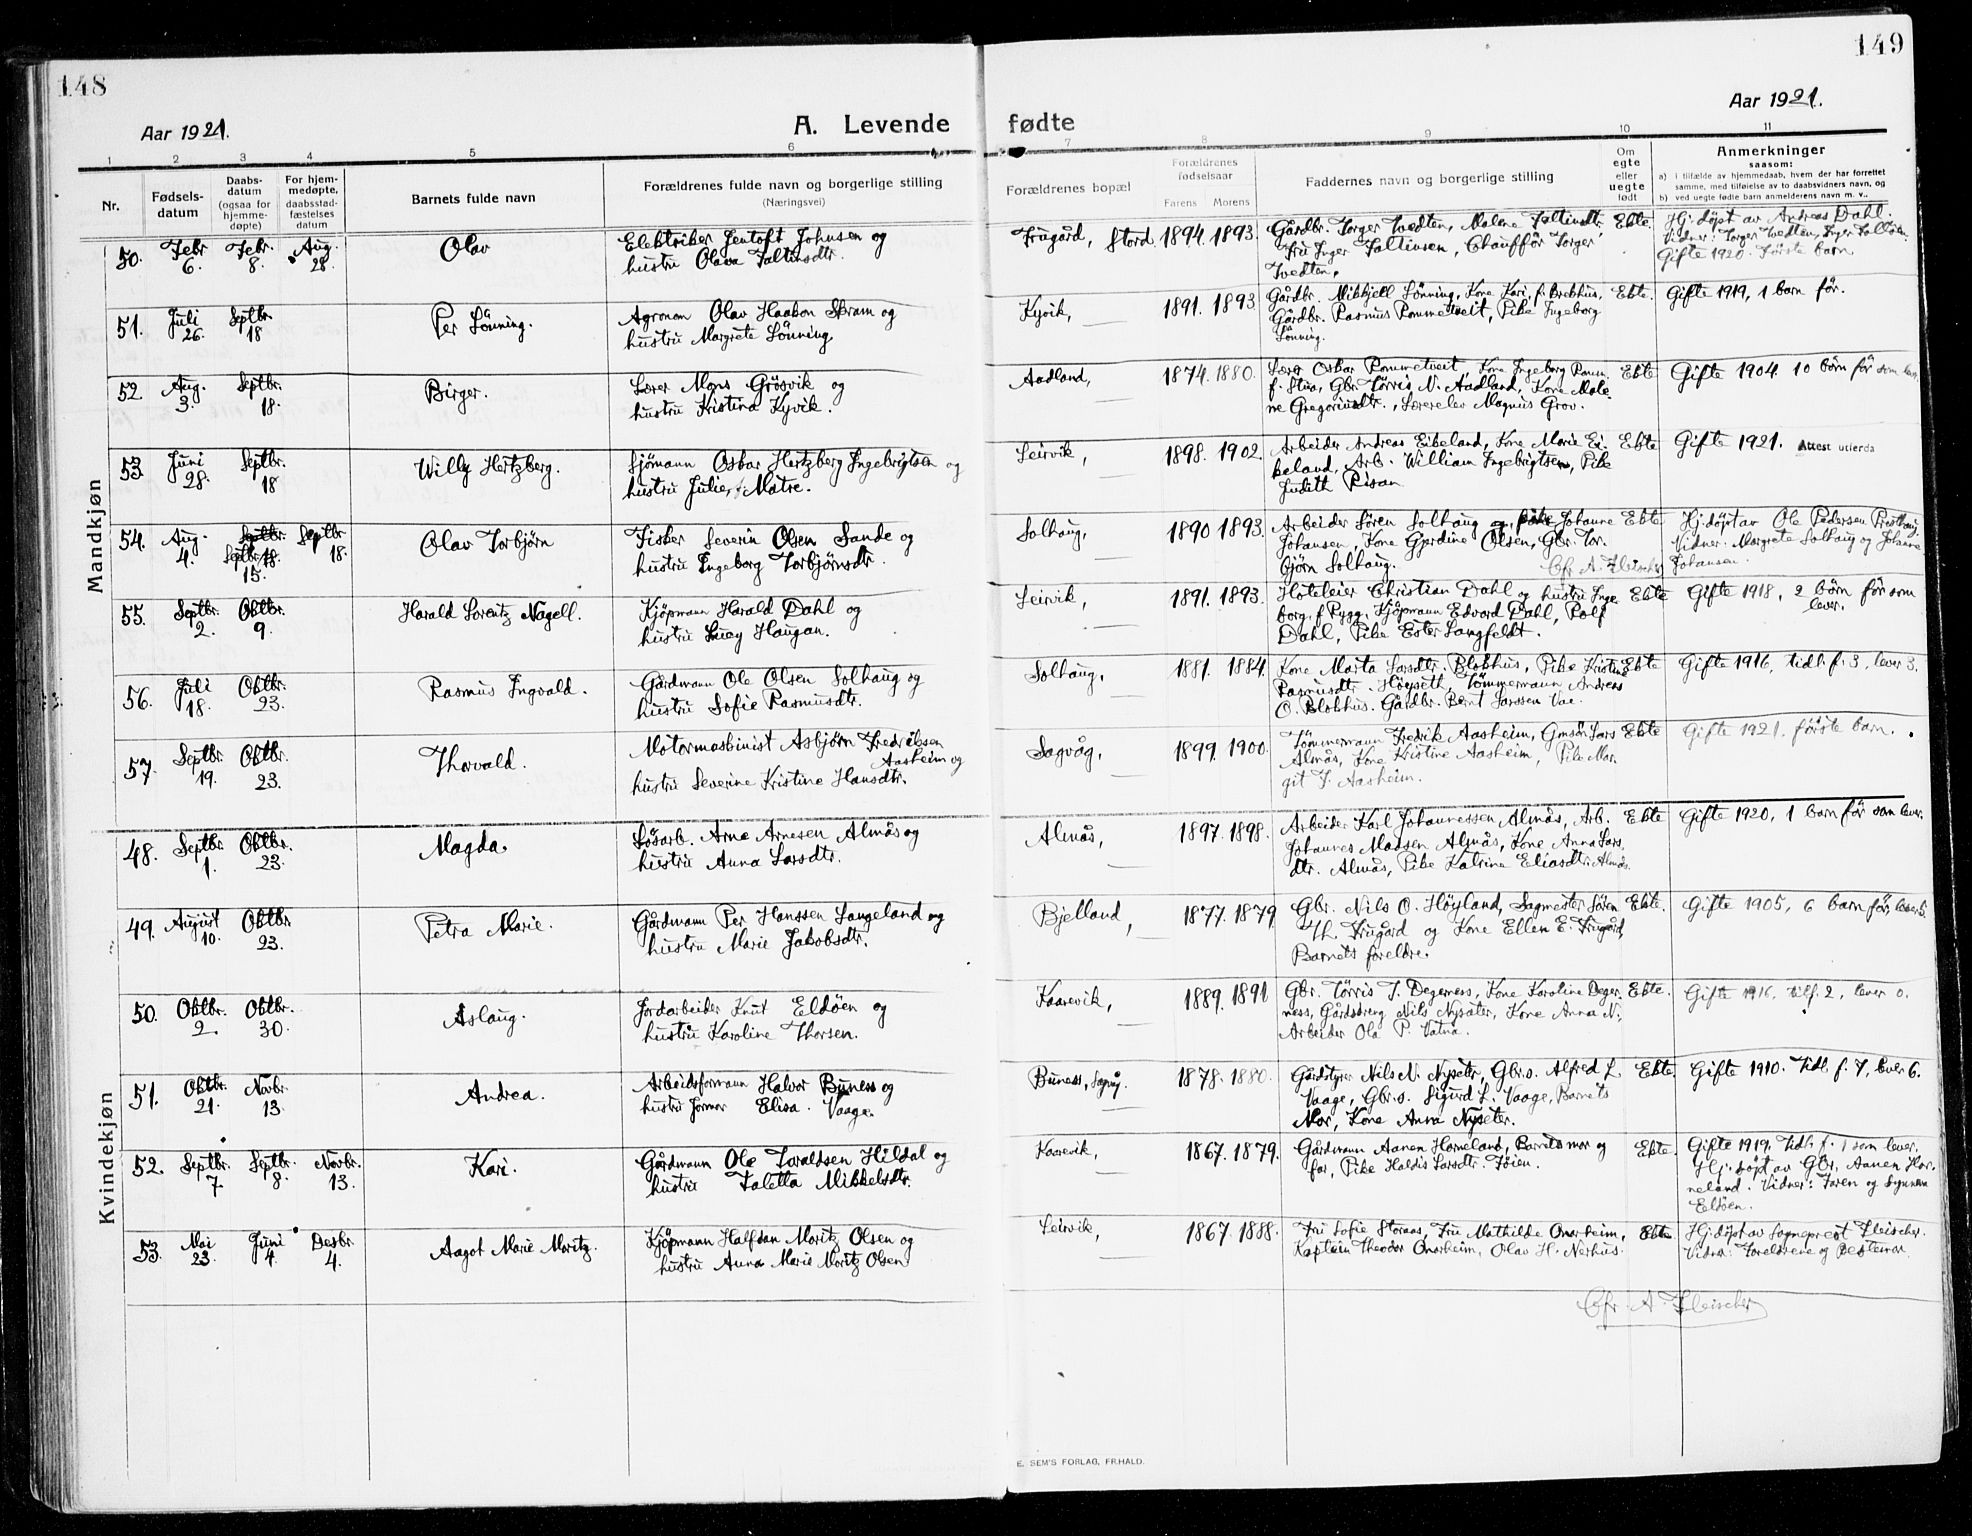 148
149
Aar 1921.
A. Levende fødte
Aar 1921.
1 2 3 4 5 6 7 8 9 10 11
Nr.
Fødsels-
datum
Daabs-
datum
(ogsaa for
hjemme-
døpte)
For hjem-
medøpte,
daabsstad-
fæstelses
datum
Barnets fulde navn
Forældrenes fulde navn og borgerlige stilling
(Næringsvei)
Forældrenes bopæl
Forældrenes
fødselsaar
Farens Morens
Faddernes navn og borgerlig stilling
Om
egte
eller
uegte
født
Anmerkninger
saasom:
a) i tilfælde av hjemmedaab, hvem der har forrettet
samme, med tilføielse av to daabsvidners navn, og
b) ved uegte fødte barn anmelderens navn m. v..
Mandkjøn
50. Febr. 6. Febr. 8. Aug. 28. Olav
Elektriker Jentoft Johnsen og
hustru Olava Faltinsdtr.
Frugård, Stord. 1894. 1893.
Gårdbr. Torger Tvedten, Malene Faltinsdtr,
Fru Inger Faltinsen, Chauffør Torger
Tvedten,
Ekte.
Hj. døpt av Andreas Dahl.
Vidner: Torger Tvedten, Inger
Gifte 1920. Første barn
51. Juli 26. Septbr. 18 Per Lönning.
Agronom Olav Haakon Skram og
hustru Margrete Lönning
Kyvik, 1891. 1893
Gårdbr. Mikkjell Lönning, Kone Kari, f. Brekhus,
Gårdbr. Rasmus Rommetveit, Pike Ingeborg
Lönning.
Ekte. Gifte 1919, 1 barn før.
52. Aug. 3. Septbr. 18. Birger.
Lærer Mons Grösvik og
hustru Kristina Kyvik.
Aadland, 1874. 1880.
Lærer Oskar Rommetveit, Kone Ingeborg Romm.
f. Stua, Gbr. Tørris N. Aadland, Kone Male-
ne Gregoriusdtr., Lærerelev Magnus Grov.
Ekte Gifte 1904. 10 børn før som lever
53. Juni 28. Septbr. 18 Willy Hertzberg.
Sjömann Oskar Hertzberg Ingebrigtsen og
hustru Julie, f. Matre.
Leirvik, 1898. 1902
Arbeider Andreas Eikeland, Kone Marie Ei-
keland, Arb. William Ingebrigtsen, Pike
Judith Risan
Ekte Gifte 1921. Attest utferda
54. Aug. 4. Septbr. 18. Septbr. 15. Septbr. 18. Olav Torbjörn
Fisker Severin Olsen Sande og
hustru Ingeborg Torbjørnsdtr.
Solhaug, 1890 1893.
Arbeider Sören Solhaug og, Johanne
Johansen, Kone Gjerdine Olsen, Gbr. Tor-
björn Solhaug.
Chr. A. Fleischer
Ekte
Hj. døpt av Ole Pedersen Presthaug.
Vidner: Margrete Solhaug og Johanne
Johansen.
55. Septbr. 2. Oktbr. 9. Harald Lorentz Nagell.
Kjøpmann Harald Dahl og
hustru Lucy Haugan.
Leirvik, 1891. 1893.
Hoteleier Christian Dahl og hustru Inge-
borg, f. Rygg. Kjøpmann Edvard Dahl, Rolf
Dahl, Pike Ester Langfeldt.
Ekte Gifte 1918, 2 börn før som
lever.
56. Juli 18. Oktbr. 23. Rasmus Ingvald.
Gårdmann Ole Olsen Solhaug og
hustru Sofie Rasmusdtr.
Solhaug, 1881. 1884.
Kone Marta Larsdtr. Blokhus, Pike Kristine
Rasmusdtr. Höyseth, Tömmermann Andreas
O. Blokhus. Gårdbr. Bernt Larssen Vae.
Ekte Gifte 1916, tidl. f. 3, lever 3.
57. Septbr. 19. Oktbr. 23. Thorvald.
Motormaskinist Asbjørn Fredriksen
Aasheim og
hustru Severine Kristine Hansdtr.
Sagvåg, 1899. 1900.
Tömmermann Fredrik Aasheim, Gmsön Lars
Almås, Kone Kristine Aasheim, Pike Mar-
git F. Aasheim.
Ekte Gifte 1921. første barn.
Kvindekjøn
48. Septbr. 1. Oktbr. 23. Magda
Løsarb. Arne Arnesen Almås og
hustru Anna Larsdtr.
Almås, 1897. 1898.
Arbeider Karl Johannessen Almås, Arb.
Johannes Madsen Almås, Kone Anna Lars-
dtr. Almås, Pike Katrine Eliasdtr. Almås.
Ekte Gifte 1920, 1 barn før som lever.
49. August 10. Oktbr. 23. Petra Marie.
Gårdmann Per Hanssen Langeland og
hustru Marie Jakobsdtr.
Bjelland, 1877. 1879
Gbr. Nils O. Höyland, Sagmester Sören
Th. Frugård og Kone Ellen E. Frugård,
Barnets foreldre.
Ekte. Gifte 1905, 6 barn før, lever 5.
50. Oktbr. 2. Oktbr. 30. Aslaug.
Jordarbeider Knut Eldöen og
hustru Karoline Thorsen.
Kaarevik, 1889. 1891
Gbr. Tørris T. Degernes, Kone Karoline Deger-
ness, Gårdsdreng Nils Nysæter, Kone Anna N.,
Arbeider Ola P. Vatna.
Ekte. Gifte 1916. tilf. 2, lever 0.
51. Oktbr. 21. Novbr. 13. Andrea.
Arbeidsformann Halvor Buness og
hustru Jormor Elisa. Vaage.
Buness, Sagvåg. 1878. 1880.
Gårdstyrer Nils N. Nysetr, Gbr.s. Alfred L.
Vaage, Gbr.s. Sigurd L. Vaage, Barnets
Mor, Kone Anna Nyseter.
Ekte. Gifte 1910. Tidl. f. 7, lever 6.
52. Septbr. 7. Septbr. 8. Novbr. 13. Kari.
Gårdmann Ole Toraldsen Hildal og
hustru Taletta Mikkelsdtr.
Kaarevik, 1867. 1879.
Gårdmann Aanen Horneland, Barnets mor og
far, Pike Haldis Larsdtr. Töien.
Ekte.
Gifte 1919. Tidl. f. 1 som lever.
Hj. döpt av Gbr. Aanen Hor-
neland. Vidner: Faren og Synneva
Eldöen.
53. Mai 23. Juni 4. Desbr. 4. Aagot Marie Moritz.
Kjøpmann Halfdan Moritz Olsen og
hustru Anna Marie Moritz Olsen
Leirvik, 1867. 1888.
Fru Sofie Storaas, Fru Mathilde Onarheim,
Kaptein Theodor Onarheim, Olav H. Nerhus.
Ekte
Hj. döpt av Sogneprest Fleischer.
Vidner: Foreldrene og Bestemor.
Chr. A. Fleischer
E. SEM'S FORLAG, FR.HALD.